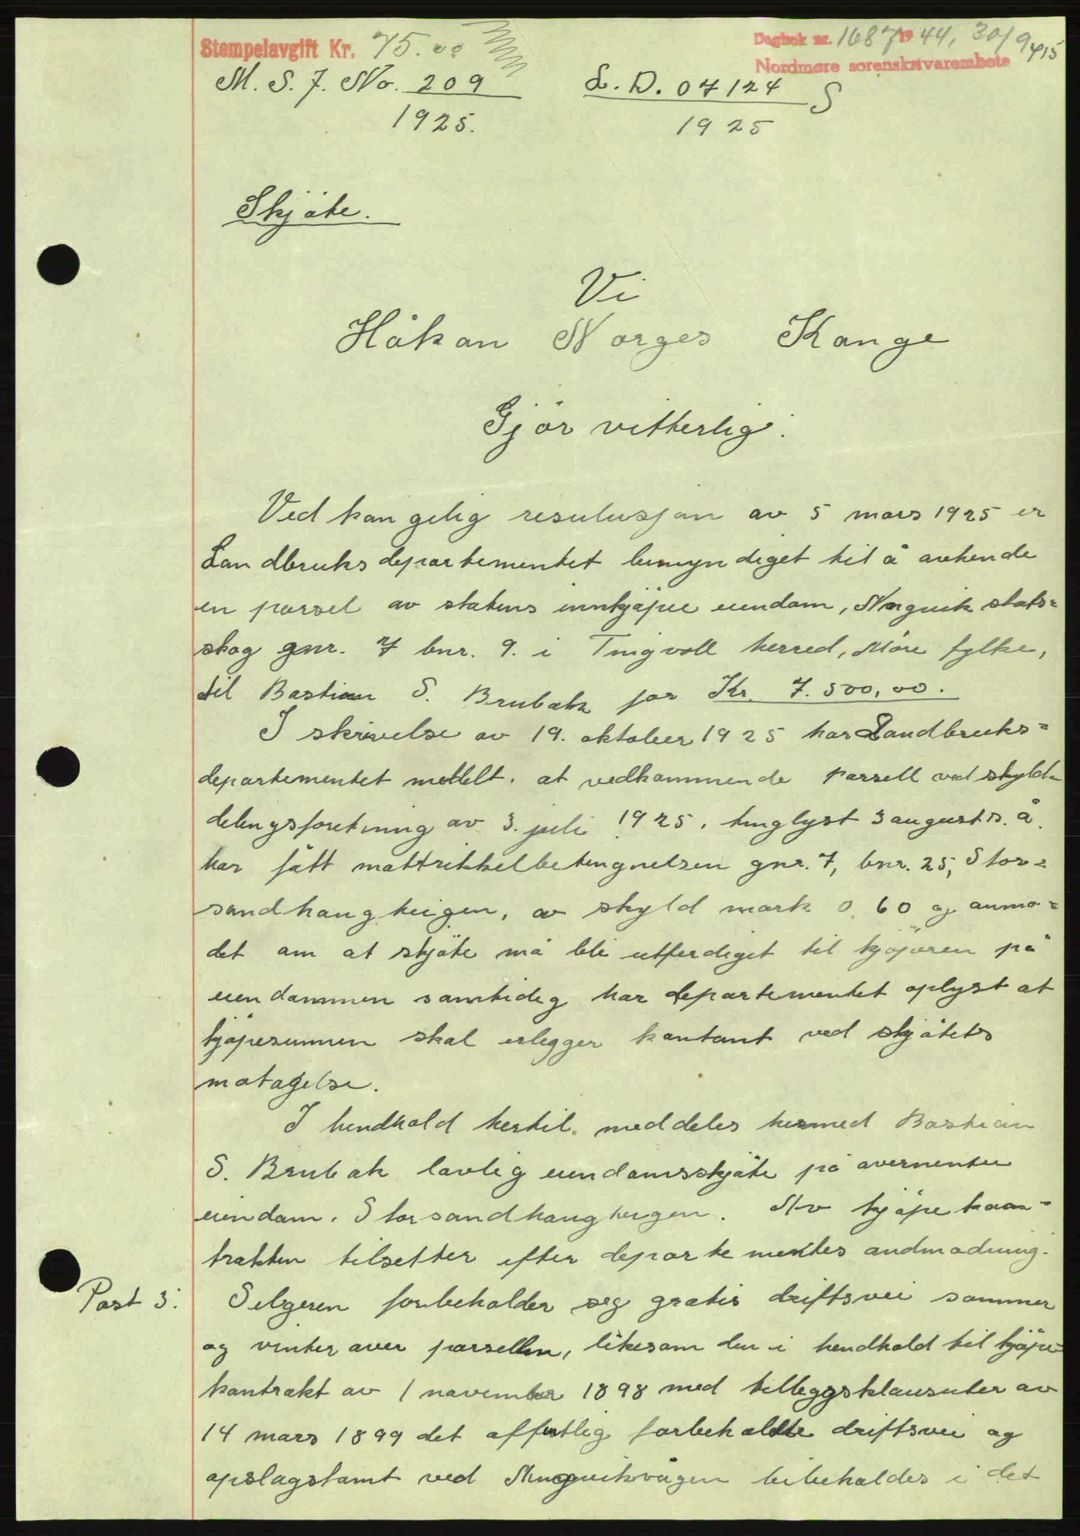 Stempelavgift Kr. 75.00
Dagbok nr. 1687 1944, 30/9 415
Nordmøre sorenskriverembete
M. S. J. No. 209
1925.
L. D. 07124 S
1925
Skjöte.
Vi
Håkon Norges Konge
Gjör vitterlig:
Ved kongelig resulusjon av 5 mars 1925 er
Landbruksdepartementet bemyndiget til å avhende
en parsel av statens innkjöpte eiendom, stats=
skog gnr. 7 bnr. 9. i Tingvoll herred, Möre fylke,
til Bastian S. Brubak for Kr. 7.500,00.
I skrivelse av 19. oktober 1925 har Landbruks=
departementet meddelt. at vedkommende parsell ved skyld=
delingsforetning av 3. juli 1925, tinglyst 3 august s. å.
har fått mattrikkelbetengnelsen gnr. 7, bnr. 25, Stor=
sandhaugteigen, av skyld mark 0,60 og anmo=
det om at skjöte må bli utferdiget til kjöperen på
eiendommen samtidig har departementet oplyst at
kjöpesummen skal erlegger kontant ved skjötets
motagelse.
I hendhold hertil meddeles hermed Bastian
S. Brubak lovlig eiendomsskjöte på overnevnte
eiendom, Storsandhaugteigen. Av kjöpekoon-
trakten tilsetter efter departementes andmodning.
Post 3: Selgeren forbeholder seg gratis driftsvei sommer
og vinter over parsellen, likesom den i hendhold til kjöpe-
kontrakt av 1 november 1898 med tilleggsklausuler av
14 mars 1899 det offentlig forbeholdte driftsvei og
opslagstomt ved bibeholdes i det